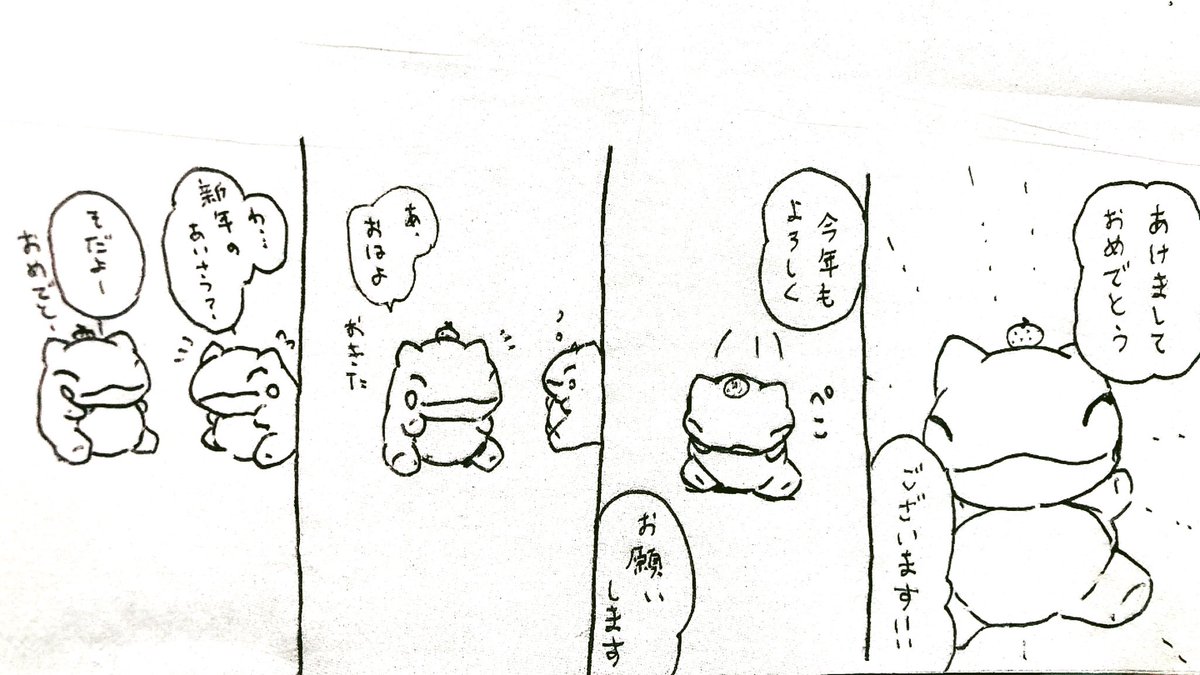 あけまして
おめでとう
ございます!!
今年も
よろしく
ぺこ
お願い
します
あ、
おはよ
おきた
わ…
新年の
あいさつ?
そだよー
おめでと、